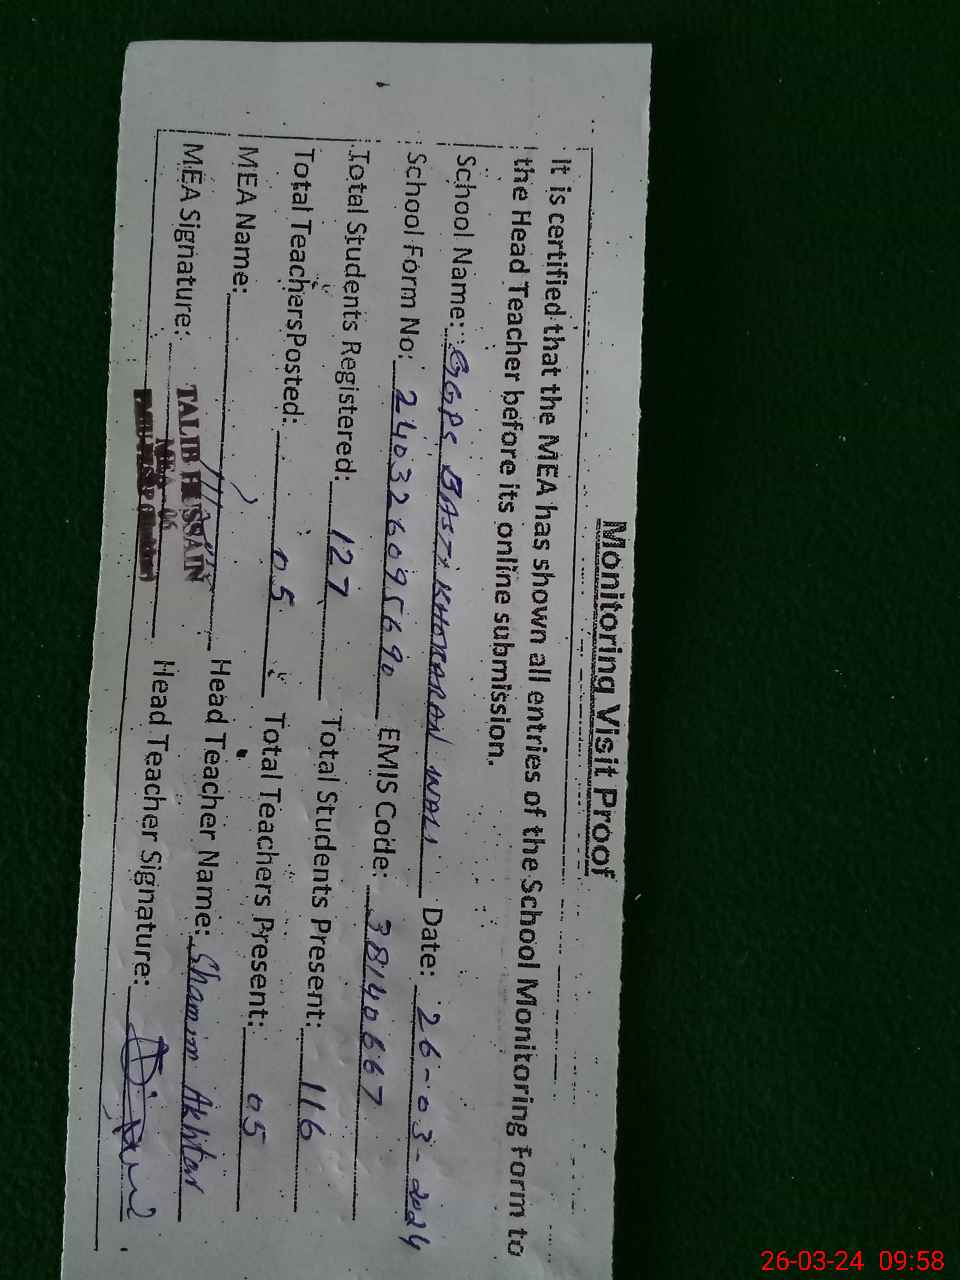 Monitoring Visit Proof
It is certified that the MEA has shown all entries of the School Monitoring Form to
the Head Teacher before its online submission.
School Name: GGPS BASTI KHOKARAN WALI Date: 26-03-2024
School Form No: 240326095690 EMIS Code: 38140667
Total Students Registered: 127 Total Students Present: 116
Total Teachers Posted: 05 Total Teachers Present: 05
MEA Name: Head Teacher Name: Shamim Akhtar
TALIB HUSSAIN
MEA Signature: Head Teacher Signature:
MEA-06
26-03-24 09:58